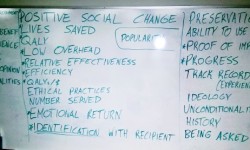 POSITIVE SOCIAL CHANGE
LIVES SAVED
QALY
LOW OVERHEAD
POPULARITY
*RELATIVE EFFECTIVENESS
*EFFICIENCY
ETHICAL PRACTICES
NUMBER SERVED
*EMOTIONAL RETURN
*IDENTIFICATION WITH RECIPIENT
PRESERVATI
ABILITY TO USE
*PROOF OF IMP
*PROGRESS
TRACK RECORD
(EXPERIENC
IDEOLOGY
UNCONDITIONALI
HISTORY
BEING ASKED